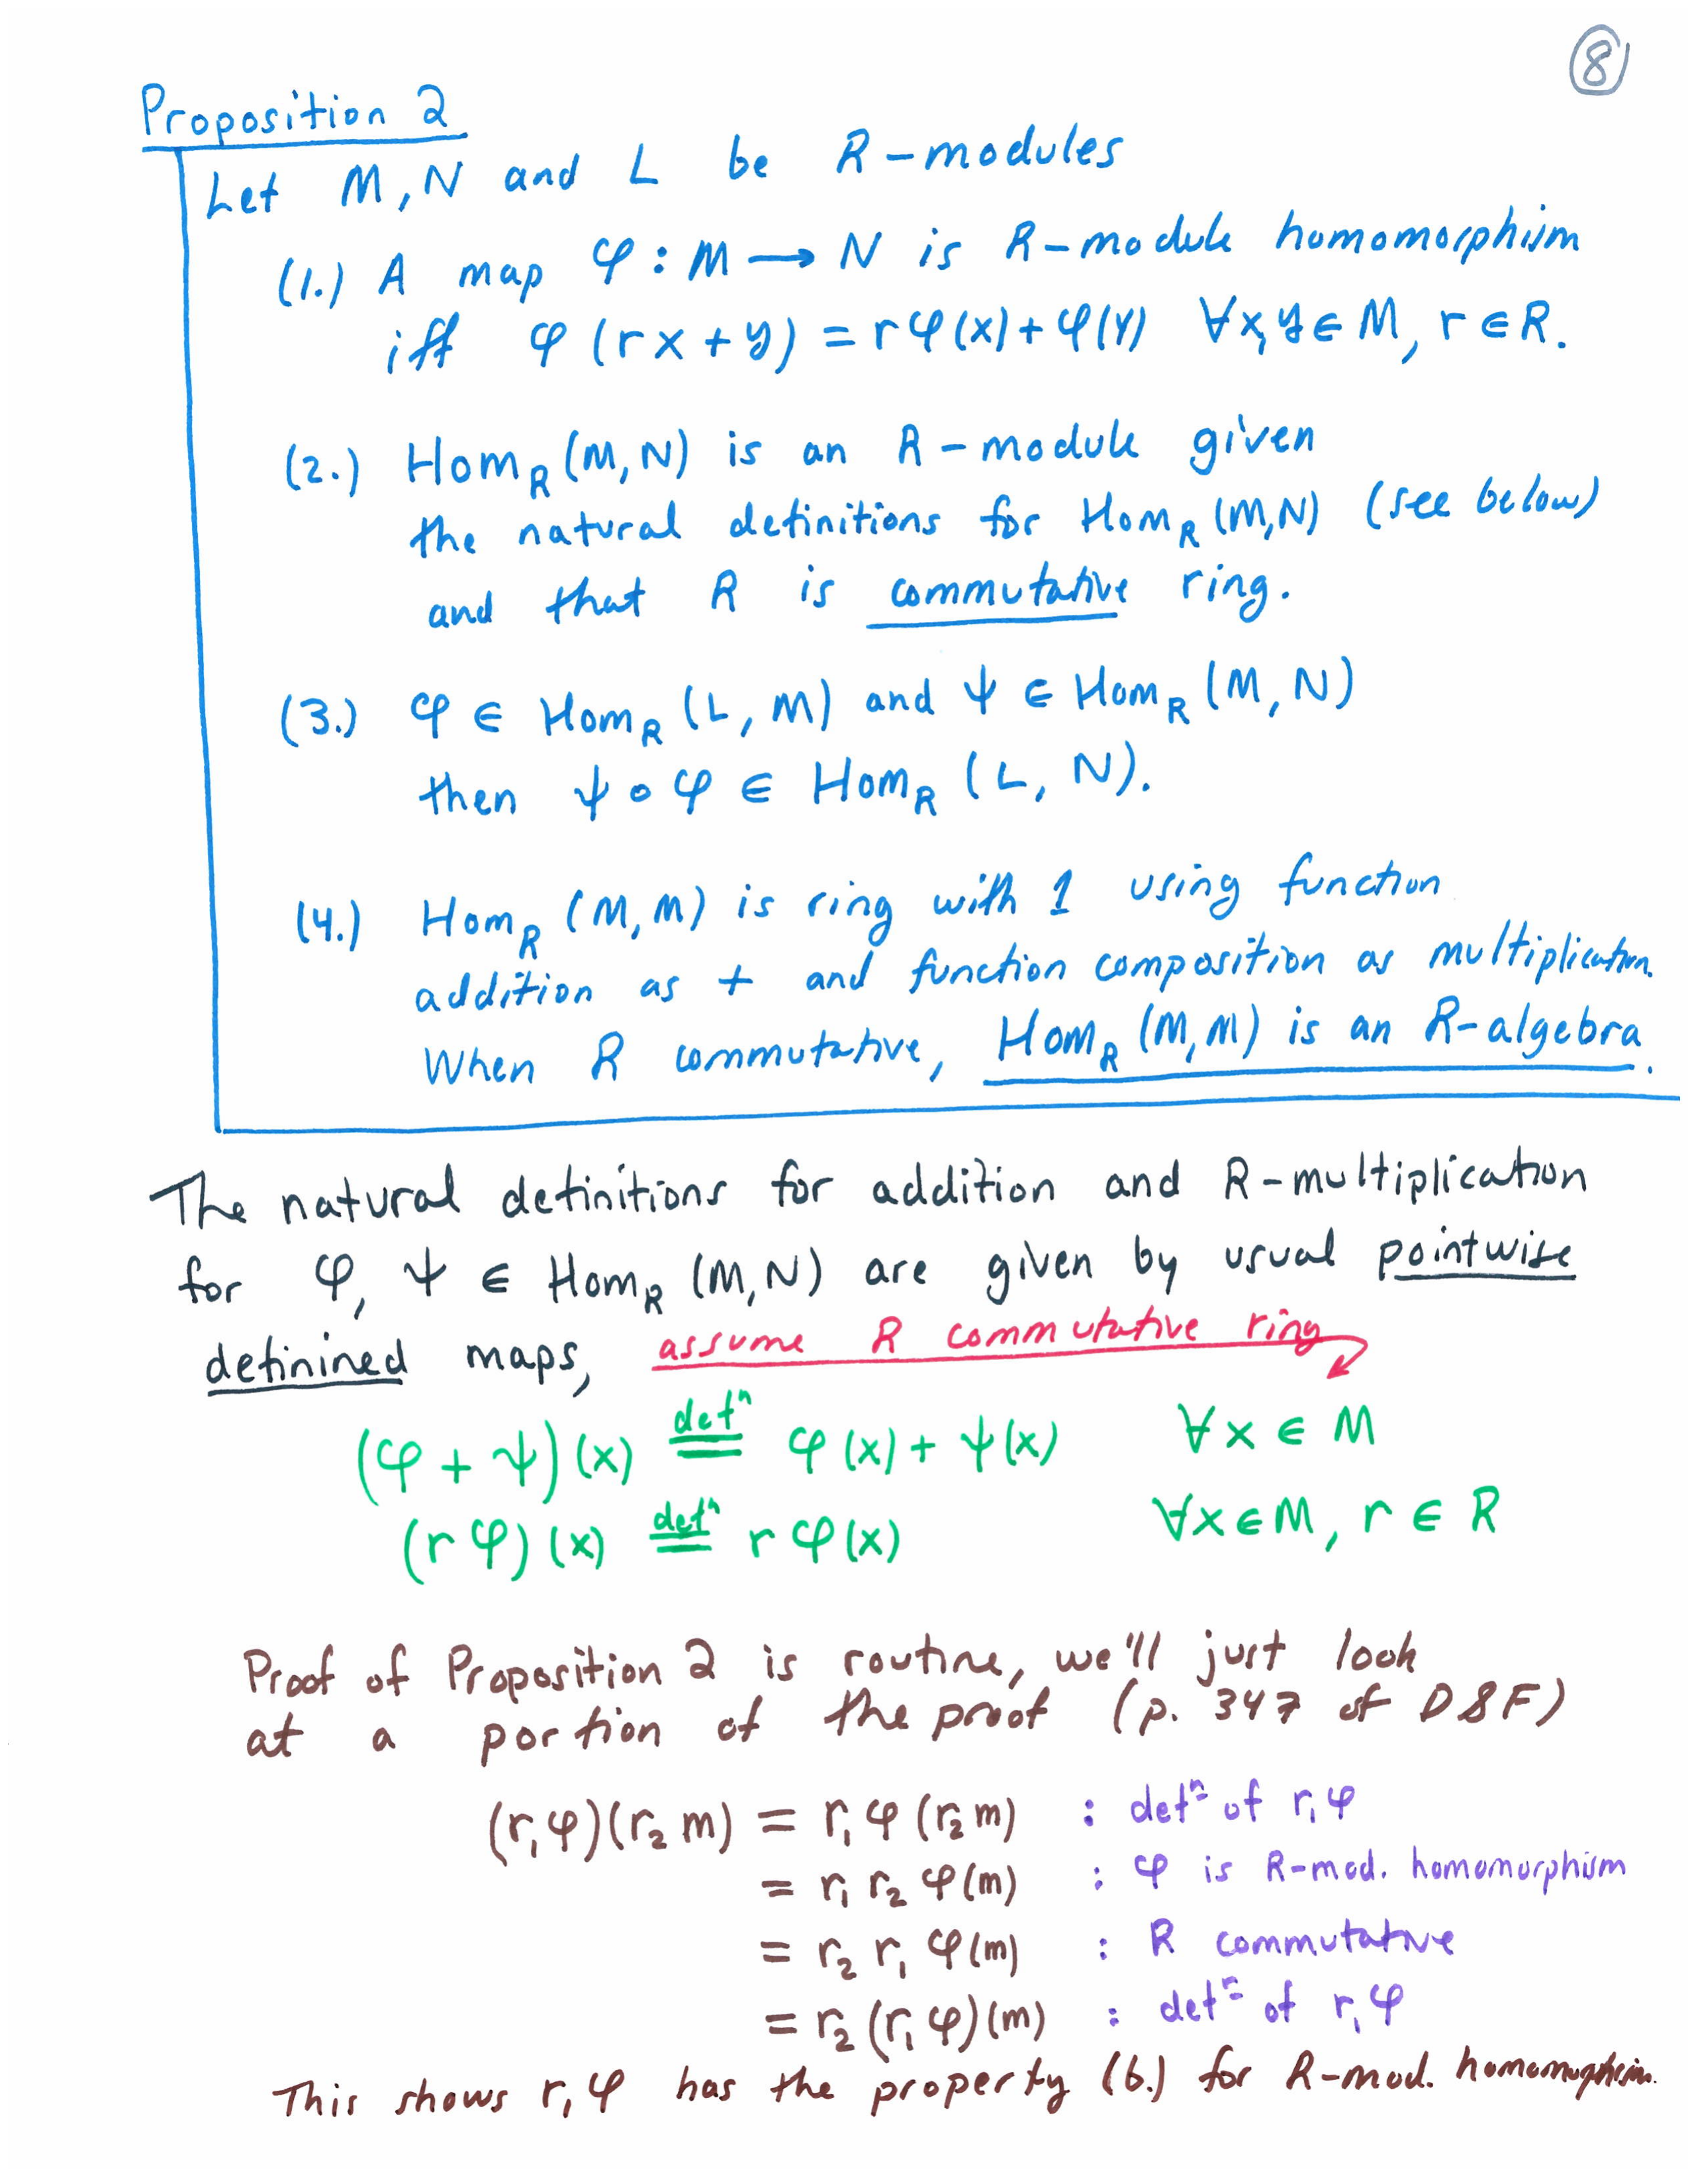 8
Proposition 2
Let M, N and L be R-modules
(1.) A map φ : M → N is R-module homomorphism
iff φ(rx + y) = rφ(x) + φ(y) ∀x,y ∈ M, r ∈ R.
(2.) Hom_R (M, N) is an R-module given
the natural definitions for Hom_R (M,N) (see below)
and that R is commutative ring.
(3.) φ ∈ Hom_R (L, M) and ψ ∈ Hom_R (M, N)
then ψ ∘ φ ∈ Hom_R (L, N).
(4.) Hom_R (M, M) is ring with 1 using function
addition as + and function composition as multiplication.
When R commutative, Hom_R (M,M) is an R-algebra.
The natural definitions for addition and R-multiplication
for φ, ψ ∈ Hom_R (M,N) are given by usual pointwise
definined maps, assume R commutative ring
(φ + ψ)(x) defⁿ= φ(x) + ψ(x) ∀x ∈ M
(rφ)(x) defⁿ= rφ(x) ∀x ∈ M, r ∈ R
Proof of Proposition 2 is routine, we'll just look
at a portion of the proof (p. 347 of D&F)
(r₁φ)(r₂ m) = r₁φ(r₂m) : defⁿ of r₁φ
= r₁ r₂ φ(m) : φ is R-mod. homomorphism
= r₂ r₁ φ(m) : R commutative
= r₂ (r₁ φ)(m) : defⁿ of r₁φ
This shows r₁φ has the property (b.) for R-mod. homomorphism.